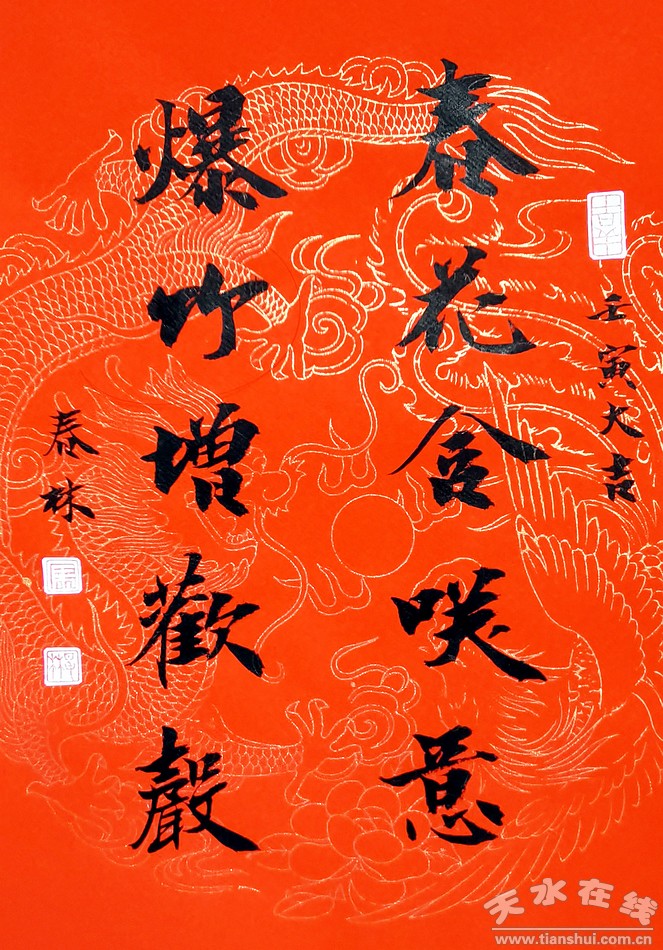 壬寅大吉
春花含咲意
爆竹增歡聲
泰林
天水在线
www.tianshui.com.cn